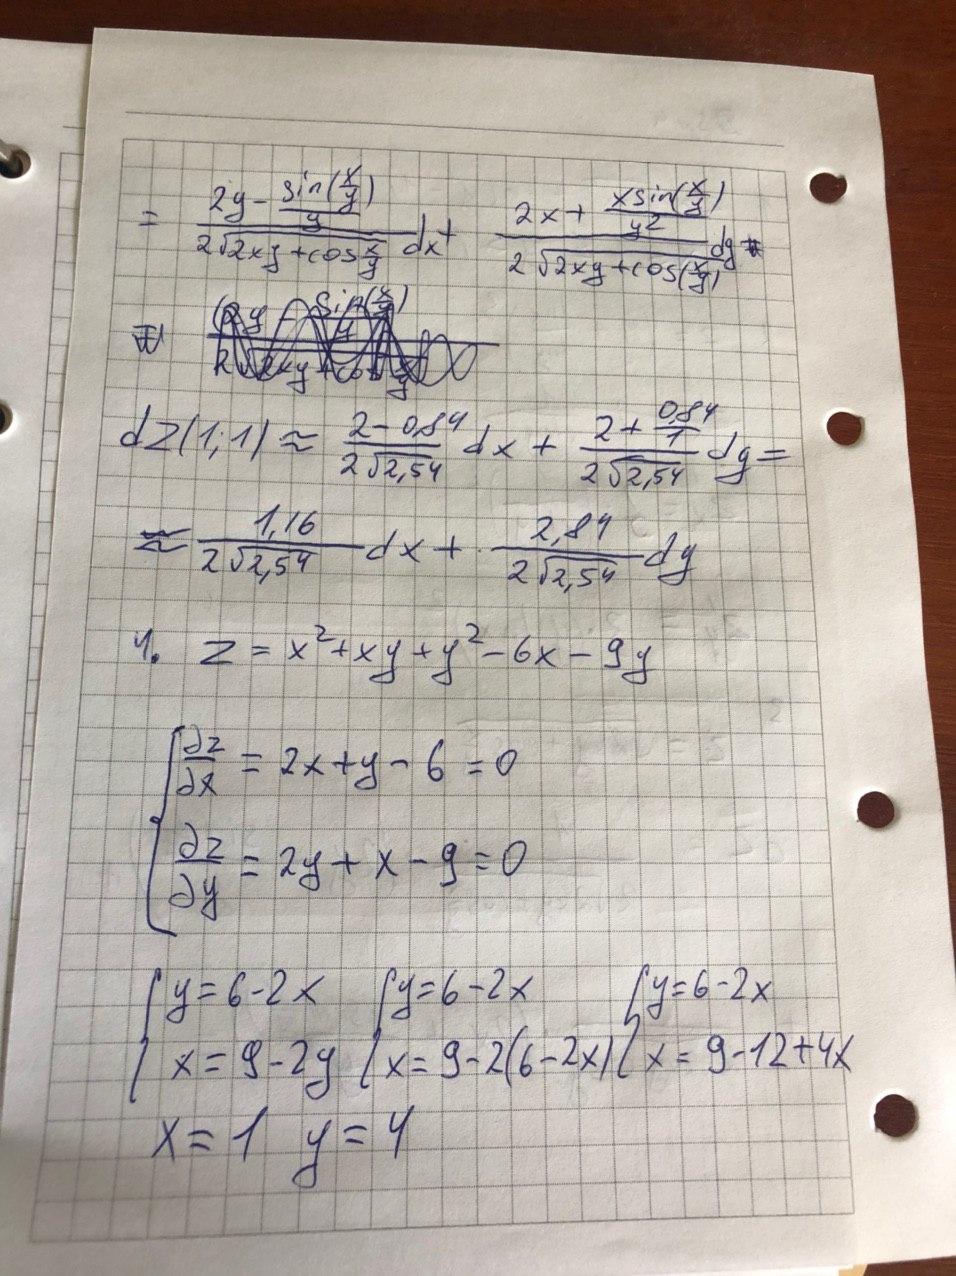 = \frac{2y - \frac{sin(\frac{x}{y})}{y}}{2\sqrt{2xy + cos\frac{x}{y}}} dx + \frac{2x + \frac{x sin(\frac{x}{y})}{y^2}}{2\sqrt{2xy + cos(\frac{x}{y})}} dy
dz(1;1) ≈ \frac{2 - 0,84}{2\sqrt{2,54}} dx + \frac{2 + \frac{0,84}{1}}{2\sqrt{2,54}} dy =
≈ \frac{1,16}{2\sqrt{2,54}} dx + \frac{2,84}{2\sqrt{2,54}} dy
4. z = x² + xy + y² - 6x - 9y
{ \frac{∂z}{∂x} = 2x + y - 6 = 0
\frac{∂z}{∂y} = 2y + x - 9 = 0
{ y = 6 - 2x { y = 6 - 2x { y = 6 - 2x
x = 9 - 2y x = 9 - 2(6 - 2x) x = 9 - 12 + 4x
x = 1 y = 4